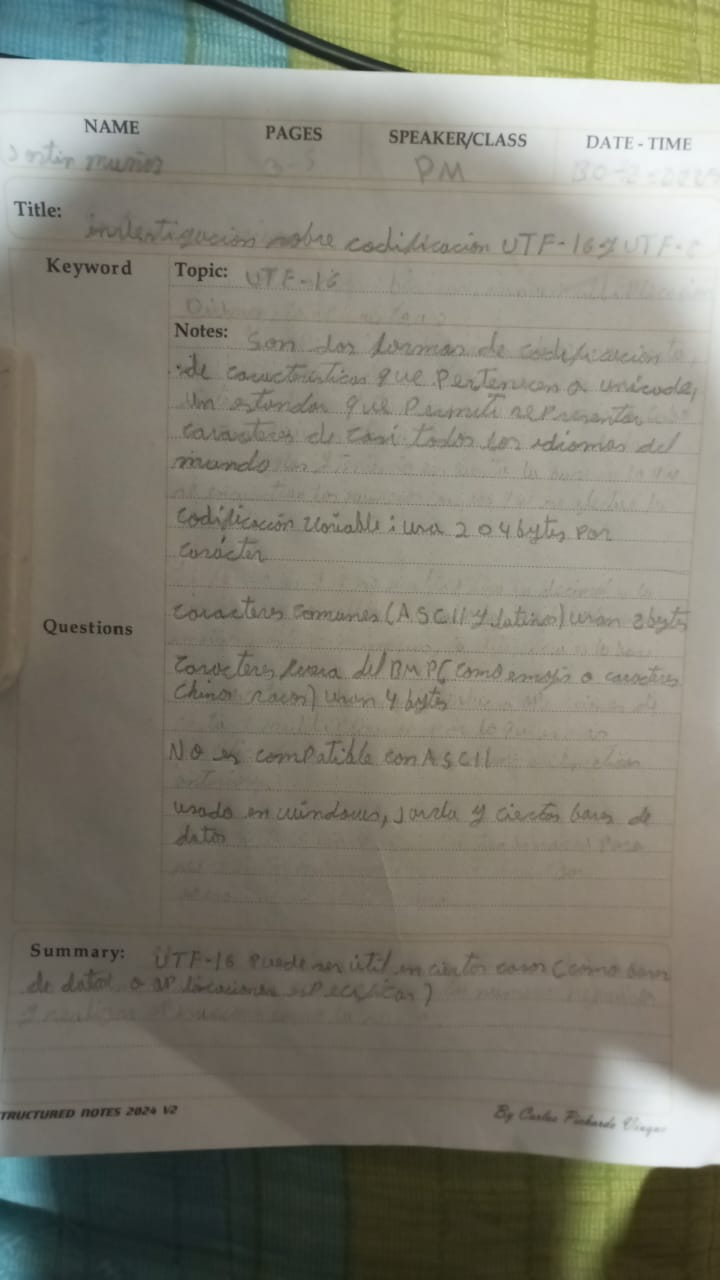 NAME PAGES SPEAKER/CLASS DATE - TIME
muños 3-5 PM
Title: investigacion sobre codificacion UTF-16 y UTF-8
Keyword Topic: UTF-16
Notes: Son dos formas de codificacion
de caracteristicas que Pertenecen a unicode,
Un estandar que Permite rePresentar
caracteres de casi todos los idiomas del
mundo
codificación variable: usa 2 o 4 bytes Por
carácter
Questions caracteres comunes (ASCII y latinos) usan 2 bytes
caracteres fuera del BMP (como emojis o caracteres
chinos raros) usan 4 bytes
NO es comPatible con ASCII
usado en windows, y ciertas bases de
datos
Summary: UTF-16 Puede ser útil en ciertos casos (como base
de datos o aPlicaciones esPecificas)
TRUCTURED NOTES 2024 V2 By Carlos Pichardo